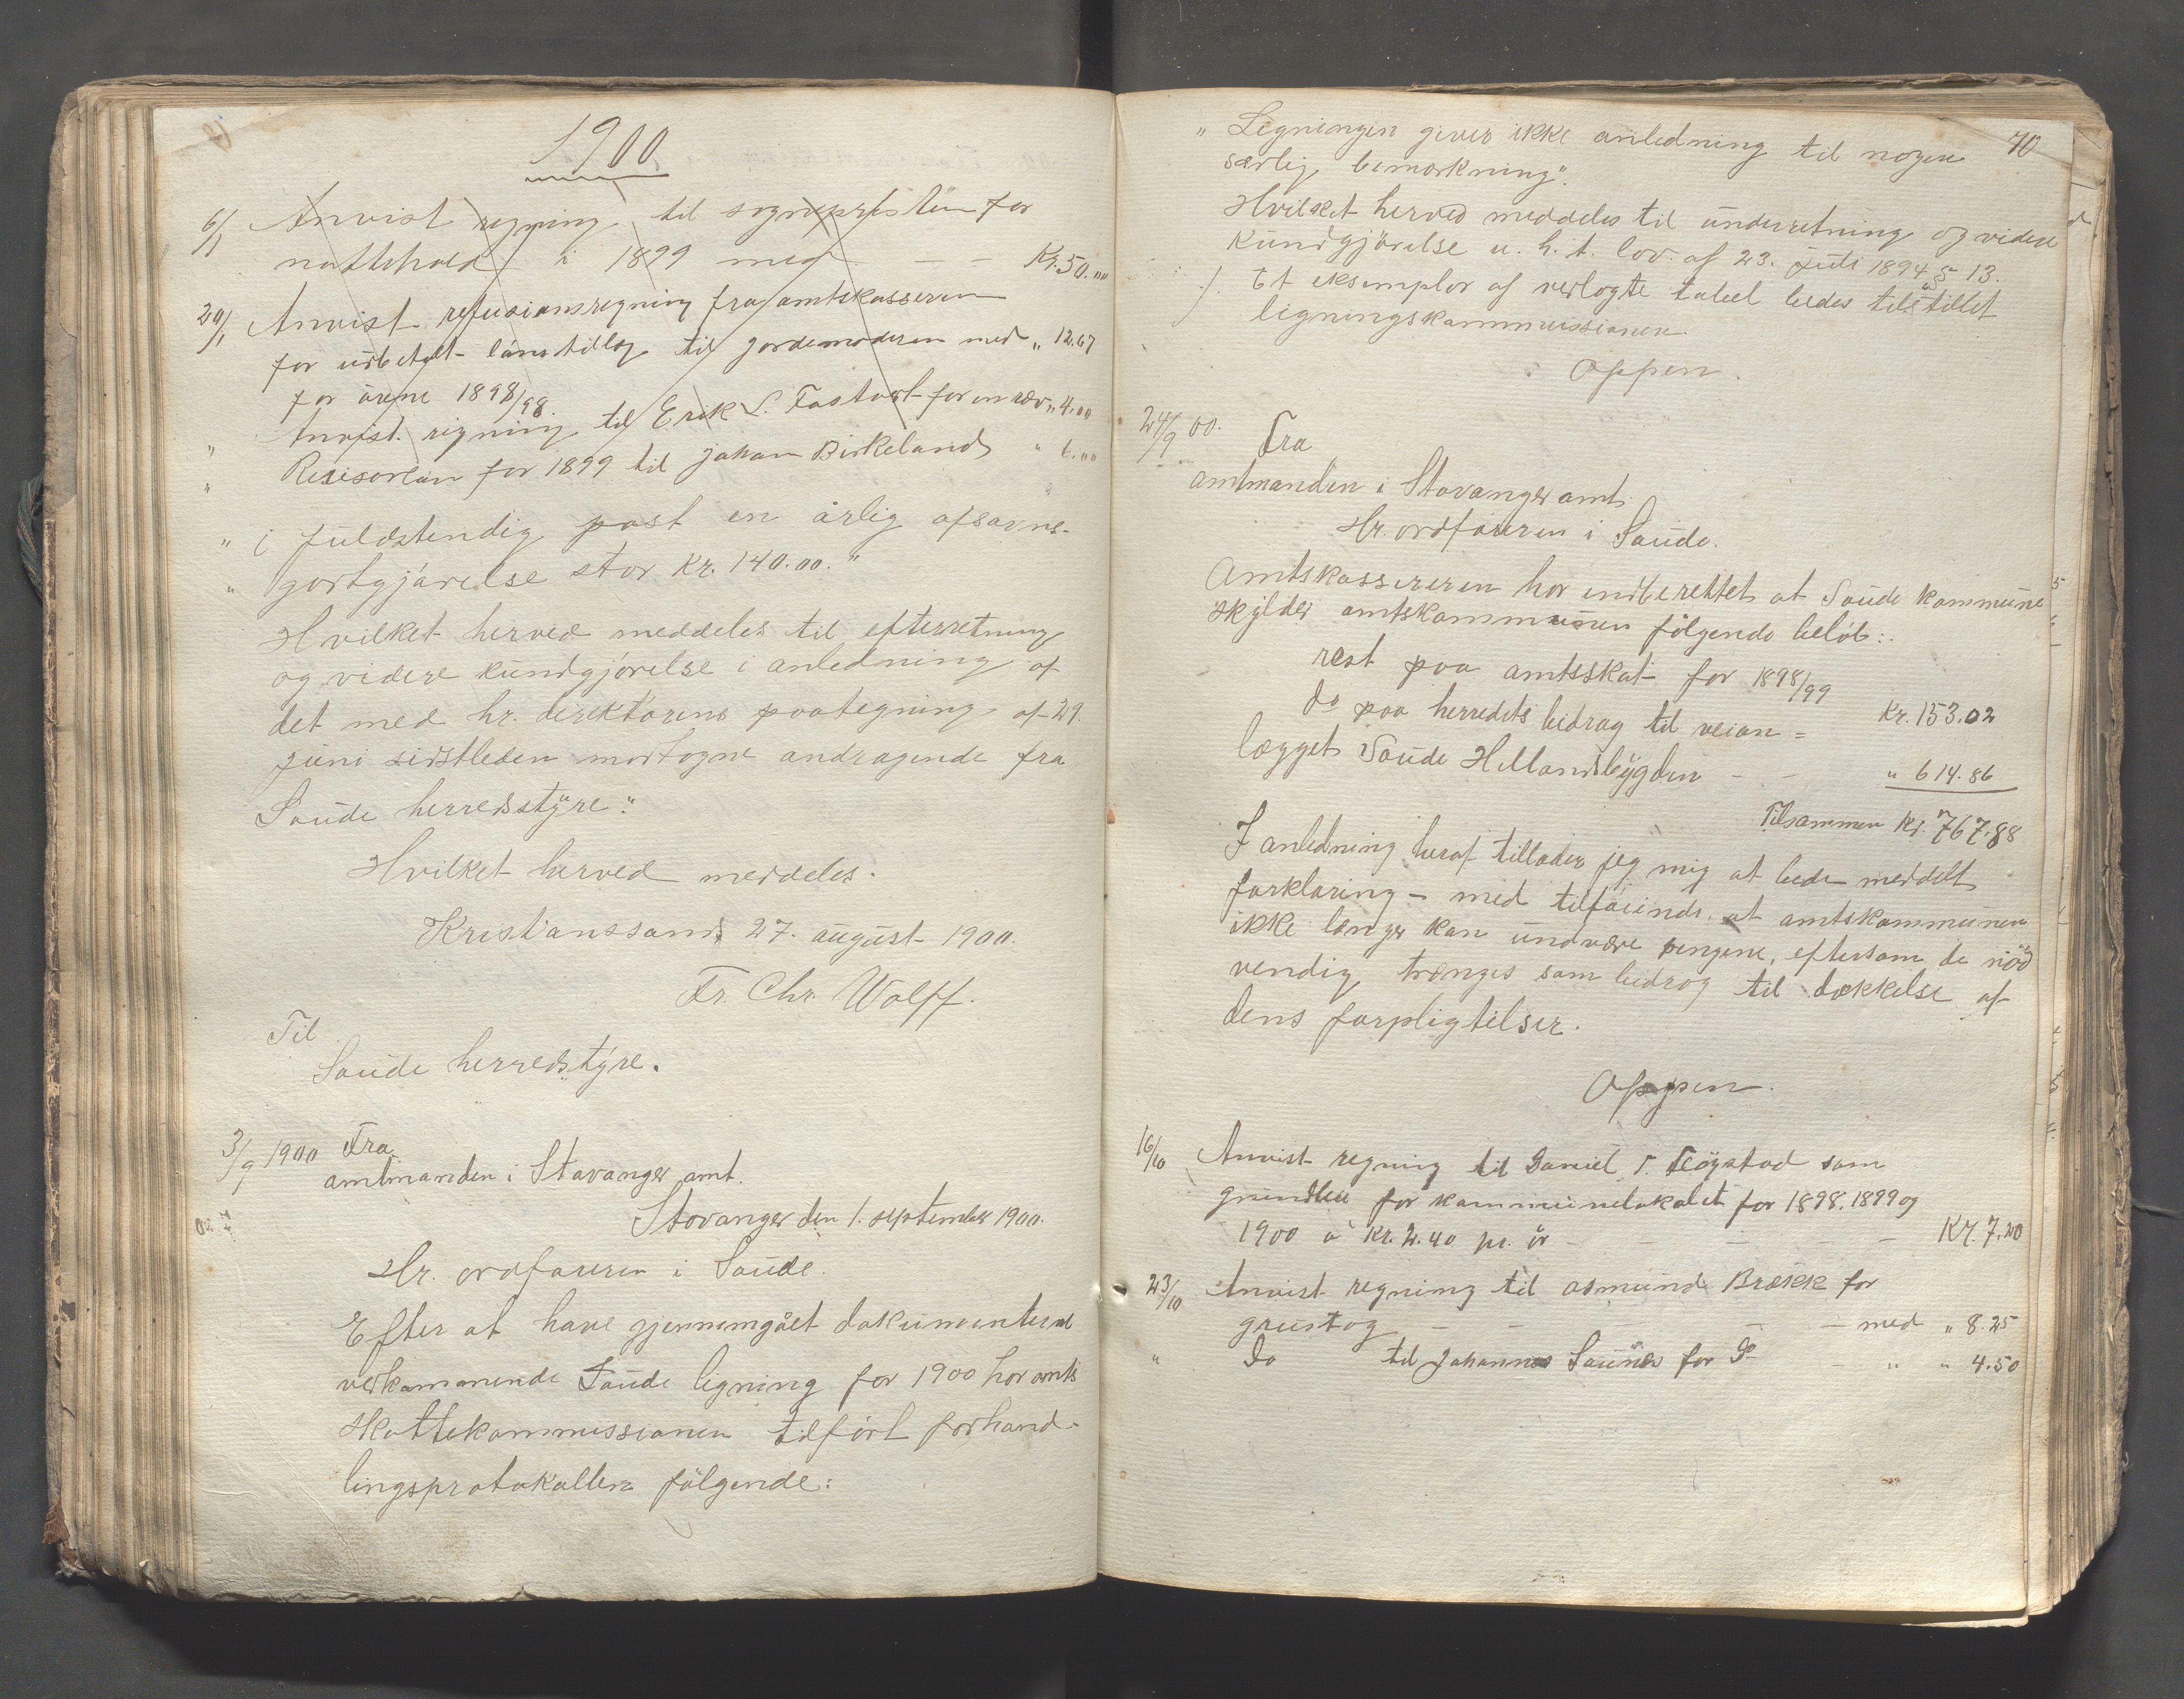 1900
6/1 Anvist regning til sognepresten for
nattehold i 1899 med — — Kr. 50."""
20/1 Anvist refusionsregning fra amtskassereren
for udbetalt lønstillæg til jordemoderen med " 12.67
for årene 1898/98.
" Anvist regning til Erik L. Fostvet for en ræv " 4.00
" Revisorløn for 1899 til Johan Birkeland " 6.""
" i fuldstendig post en årlig afsavns-
" godtgjørelse stor Kr. 140.00."
Hvilket herved meddeles til efterretning
og videre kundgjørelse i anledning af
det med hr. direktørens paategning af 29.
juni sidstleden modtagne andragende fra
Saude herredsstyre."
Hvilket herved meddeles.
Kristianssand, 27. august 1900.
Fr. Chr. Wolff.
Til
Saude herredsstyre.
3/9 1900 Fra
amtmanden i Stavanger amt.
Stavanger den 1. september 1900.
Hr. ordføreren i Saude.
Efter at have gjennemgået dokumenterne
vedkommende Saude ligning for 1900 har amts
skattekommissionen tilført forhand-
lingsprotokollen følgende:
70
" Ligningen giver ikke anledning til nogen
særlig bemærkning".
Hvilket herved meddeles til underretning og videre
kundgjørelse u. h. t. lov. af 23. juli 1894 § 13.
./. Et eksemplar af vedlagte tabel bedes tilstillet
ligningskommissionen.
Oppen.
24/9 00. Fra
amtmanden i Stavanger amt
Hr. ordføreren i Saude.
Amtskassereren har indberettet at Saude kommune
skylder amtskommunen følgende beløb:
rest paa amtsskat for 1898/99
Kr. 153.02
do paa herredets bidrag til veian=
lægget Saude Hellandsbygden — — " 614.86
Tilsammen Kr. 767.88
I anledning heraf tillader jeg mig at bede meddelt
forklaring – med tilføiende at amtskommunen
ikke længer kan undvære pengene, eftersom de nød
vendig trænges som bidrag til dækkelse af
dens forpligtelser.
Oppen.
16/10 Anvist regning til Daniel T. Fløgstad som
grundleie for kommunelokalet for 1898. 1899 og
1900 à Kr. 2.40 pr. år — — — — Kr. 7.20
23/10 Anvist regning til Asmund Brække for
grustag — — — — — med " 8.25
" Do til Johannes Saunes for Do — " " 4.50